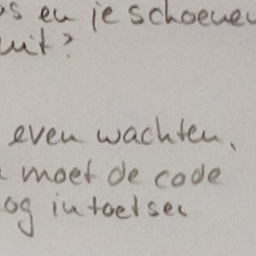 en je schoenen
uit?
even wachten,
moet de code
intoetsen